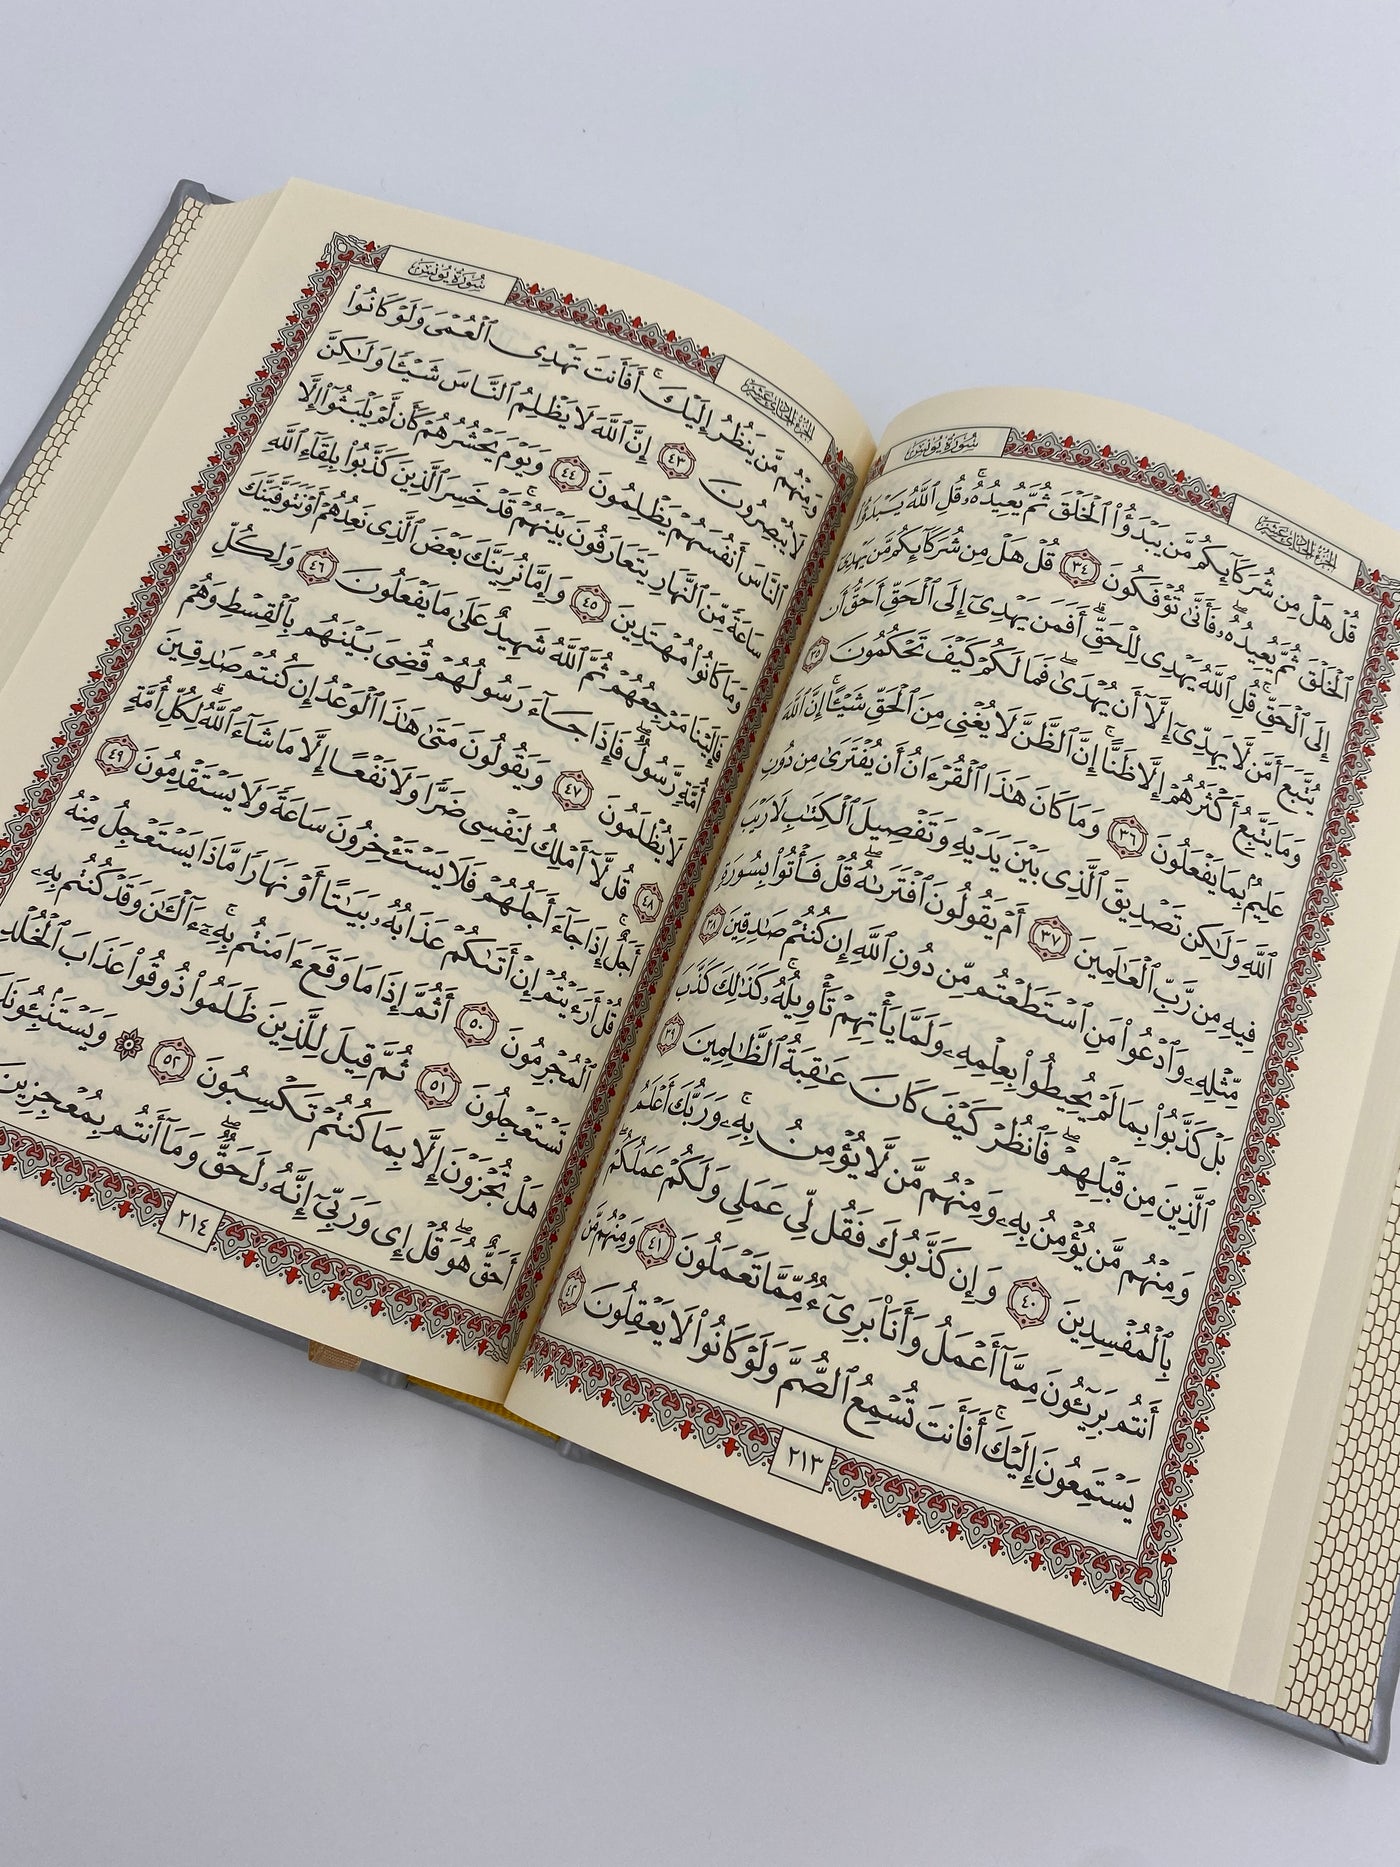 سُورَةُ يُونُسَ
الجُزْءُ الحَادِي عَشَرَ
قُلْ هَلْ مِن شُرَكَآئِكُم مَّن يَبْدَؤُا۟ ٱلْخَلْقَ ثُمَّ يُعِيدُهُۥ ۚ قُلِ ٱللَّهُ يَبْدَؤُا۟
ٱلْخَلْقَ ثُمَّ يُعِيدُهُۥ ۖ فَأَنَّىٰ تُؤْفَكُونَ ٣٤ قُلْ هَلْ مِن شُرَكَآئِكُم مَّن يَهْدِىٓ
إِلَى ٱلْحَقِّ ۚ قُلِ ٱللَّهُ يَهْدِى لِلْحَقِّ ۗ أَفَمَن يَهْدِىٓ إِلَى ٱلْحَقِّ أَحَقُّ أَن
يُتَّبَعَ أَمَّن لَّا يَهِدِّىٓ إِلَّآ أَن يُهْدَىٰ ۖ فَمَا لَكُمْ كَيْفَ تَحْكُمُونَ ٣٥
وَمَا يَتَّبِعُ أَكْثَرُهُمْ إِلَّا ظَنًّا ۚ إِنَّ ٱلظَّنَّ لَا يُغْنِى مِنَ ٱلْحَقِّ شَيْـًٔا ۚ إِنَّ ٱللَّهَ
عَلِيمٌۢ بِمَا يَفْعَلُونَ ٣٦ وَمَا كَانَ هَـٰذَا ٱلْقُرْءَانُ أَن يُفْتَرَىٰ مِن دُونِ
ٱللَّهِ وَلَـٰكِن تَصْدِيقَ ٱلَّذِى بَيْنَ يَدَيْهِ وَتَفْصِيلَ ٱلْكِتَـٰبِ لَا رَيْبَ
فِيهِ مِن رَّبِّ ٱلْعَـٰلَمِينَ ٣٧ أَمْ يَقُولُونَ ٱفْتَرَىٰهُ ۖ قُلْ فَأْتُوا۟ بِسُورَةٍ
مِّثْلِهِۦ وَٱدْعُوا۟ مَنِ ٱسْتَطَعْتُم مِّن دُونِ ٱللَّهِ إِن كُنتُمْ صَـٰدِقِينَ ٣٨
بَلْ كَذَّبُوا۟ بِمَا لَمْ يُحِيطُوا۟ بِعِلْمِهِۦ وَلَمَّا يَأْتِهِمْ تَأْوِيلُهُۥ ۚ كَذَٰلِكَ كَذَّبَ
ٱلَّذِينَ مِن قَبْلِهِمْ ۖ فَٱنظُرْ كَيْفَ كَانَ عَـٰقِبَةُ ٱلظَّـٰلِمِينَ ٣٩
وَمِنْهُم مَّن يُؤْمِنُ بِهِۦ وَمِنْهُم مَّن لَّا يُؤْمِنُ بِهِۦ ۚ وَرَبُّكَ أَعْلَمُ
بِٱلْمُفْسِدِينَ ٤٠ وَإِن كَذَّبُوكَ فَقُل لِّى عَمَلِى وَلَكُمْ عَمَلُكُمْ ۖ
أَنتُم بَرِيٓـُٔونَ مِمَّآ أَعْمَلُ وَأَنَا۠ بَرِىٓءٌ مِّمَّا تَعْمَلُونَ ٤١ وَمِنْهُم مَّن
يَسْتَمِعُونَ إِلَيْكَ ۚ أَفَأَنتَ تُسْمِعُ ٱلصُّمَّ وَلَوْ كَانُوا۟ لَا يَعْقِلُونَ ٤٢
٢١٣
سُورَةُ يُونُسَ
الجُزْءُ الحَادِي عَشَرَ
وَمِنْهُم مَّن يَنظُرُ إِلَيْكَ ۚ أَفَأَنتَ تَهْدِى ٱلْعُمْىَ وَلَوْ كَانُوا۟
لَا يُبْصِرُونَ ٤٣ إِنَّ ٱللَّهَ لَا يَظْلِمُ ٱلنَّاسَ شَيْـًٔا وَلَـٰكِنَّ
ٱلنَّاسَ أَنفُسَهُمْ يَظْلِمُونَ ٤٤ وَيَوْمَ يَحْشُرُهُمْ كَأَن لَّمْ يَلْبَثُوٓا۟ إِلَّا
سَاعَةً مِّنَ ٱلنَّهَارِ يَتَعَارَفُونَ بَيْنَهُمْ ۚ قَدْ خَسِرَ ٱلَّذِينَ كَذَّبُوا۟ بِلِقَآءِ ٱللَّهِ
وَمَا كَانُوا۟ مُهْتَدِينَ ٤٥ وَإِمَّا نُرِيَنَّكَ بَعْضَ ٱلَّذِى نَعِدُهُمْ أَوْ نَتَوَفَّيَنَّكَ
فَإِلَيْنَا مَرْجِعُهُمْ ثُمَّ ٱللَّهُ شَهِيدٌ عَلَىٰ مَا يَفْعَلُونَ ٤٦ وَلِكُلِّ
أُمَّةٍ رَّسُولٌ ۖ فَإِذَا جَآءَ رَسُولُهُمْ قُضِىَ بَيْنَهُم بِٱلْقِسْطِ وَهُمْ
لَا يُظْلَمُونَ ٤٧ وَيَقُولُونَ مَتَىٰ هَـٰذَا ٱلْوَعْدُ إِن كُنتُمْ صَـٰدِقِينَ
٤٨ قُل لَّآ أَمْلِكُ لِنَفْسِى ضَرًّا وَلَا نَفْعًا إِلَّا مَا شَآءَ ٱللَّهُ ۗ لِكُلِّ أُمَّةٍ
أَجَلٌ ۚ إِذَا جَآءَ أَجَلُهُمْ فَلَا يَسْتَـْٔخِرُونَ سَاعَةً وَلَا يَسْتَقْدِمُونَ ٤٩
قُلْ أَرَءَيْتُمْ إِنْ أَتَىٰكُمْ عَذَابُهُۥ بَيَـٰتًا أَوْ نَهَارًا مَّاذَا يَسْتَعْجِلُ مِنْهُ
ٱلْمُجْرِمُونَ ٥٠ أَثُمَّ إِذَا مَا وَقَعَ ءَامَنتُم بِهِۦٓ ۚ ءَآلْـَٔـٰنَ وَقَدْ كُنتُم بِهِۦ
تَسْتَعْجِلُونَ ٥١ ثُمَّ قِيلَ لِلَّذِينَ ظَلَمُوا۟ ذُوقُوا۟ عَذَابَ ٱلْخُلْدِ
هَلْ تُجْزَوْنَ إِلَّا بِمَا كُنتُمْ تَكْسِبُونَ ٥٢ ۞ وَيَسْتَنۢبِـُٔونَكَ
أَحَقٌّ هُوَ ۖ قُلْ إِى وَرَبِّىٓ إِنَّهُۥ لَحَقٌّ ۖ وَمَآ أَنتُم بِمُعْجِزِينَ
٢١٤